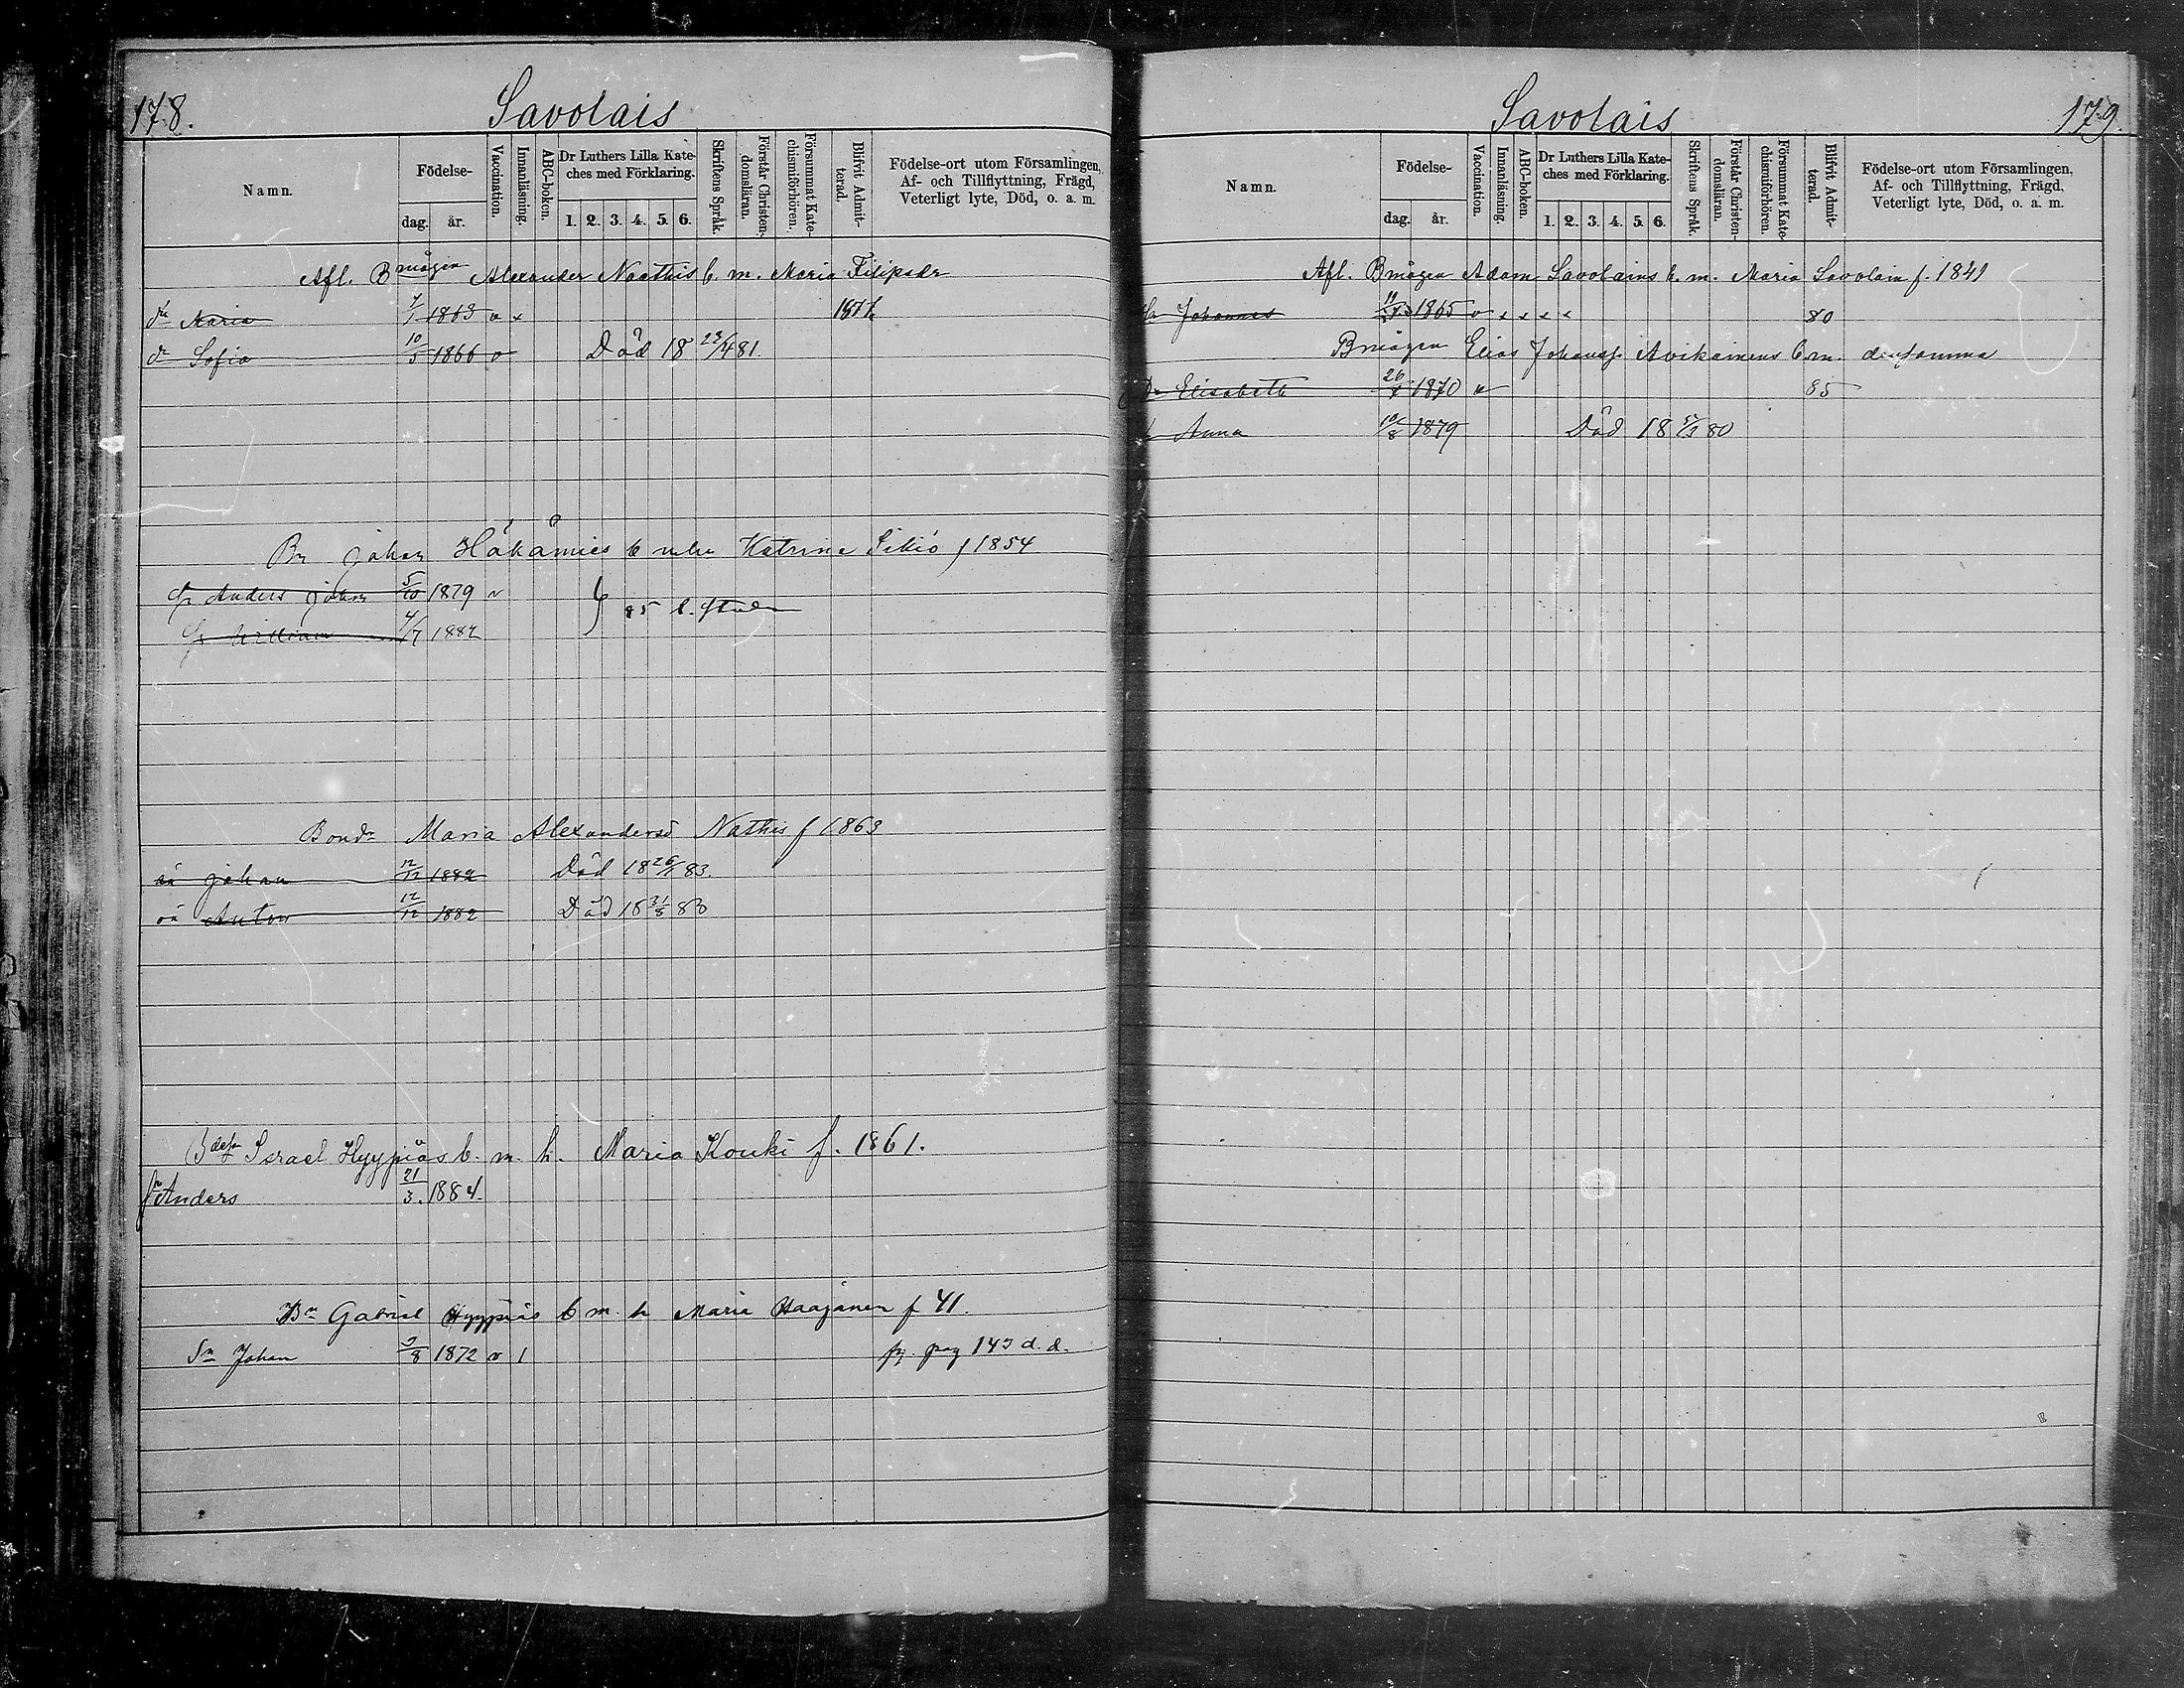 178.
Savolais
Namn.
Födelse-
dag. år.
Vaccination.
Innanläsning.
ABC-boken.
Dr Luthers Lilla Kate-
ches med Förklaring.
1. 2. 3. 4. 5. 6.
Skriftens Språk.
Förstår Christen-
domsläran.
Försummat Kate-
chismiförhören.
Blifvit Admit-
terad.
Födelse-ort utom Församlingen,
Af- och Tillflyttning, Frägd,
Veterligt lyte, Död, o. a. m.
Afl. Bmågen Alexander Naathis b. m. Maria Filipsdr
dr Maria 1863 v x
dr Sofia 10/5 1866 v Död 18 22/4 81.
Bn Johan Häkämies b m hu Katrina Sikiö f 1854
Sn Anders Johan 5/10 1879 v
Sn William 4/7 1882
Bondr Maria Alexandersd Nathis f 1863
oä Johan 12/12 1882 Död 18 26/5 83.
oä Anton 12/12 1882 Död 18 31/5 83
Israel Hyypiäs b. m. h. Maria Kouki f. 1861.
sn Anders 21/3. 1884.
Bn Gabriel Hyypiäs b m. h Maria Haajanen f 41.
Sn Johan 3/8 1872 v 1 pag 143 d. d.
Savolais
179.
Namn.
Födelse-
dag. år.
Vaccination.
Innanläsning.
ABC-boken.
Dr Luthers Lilla Kate-
ches med Förklaring.
1. 2. 3. 4. 5. 6.
Skriftens Språk.
Förstår Christen-
domsläran.
Försummat Kate-
chismiförhören.
Blifvit Admit-
terad.
Födelse-ort utom Församlingen,
Af- och Tillflyttning, Frägd,
Veterligt lyte, Död, o. a. m.
Afl. Bmågen Adam Savolains b. m. Maria Savolain f. 1841
Johannes 1865 v x x x x 80
Bmågen Elias Johanss. Avikainens b. m. densamma
Dr Elisabeth 1870 v 85
Anna 10/8 1879 Död 18 80